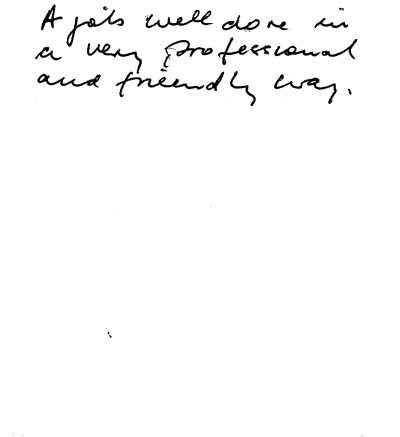 A job well done in
a very professional
and friendly way.